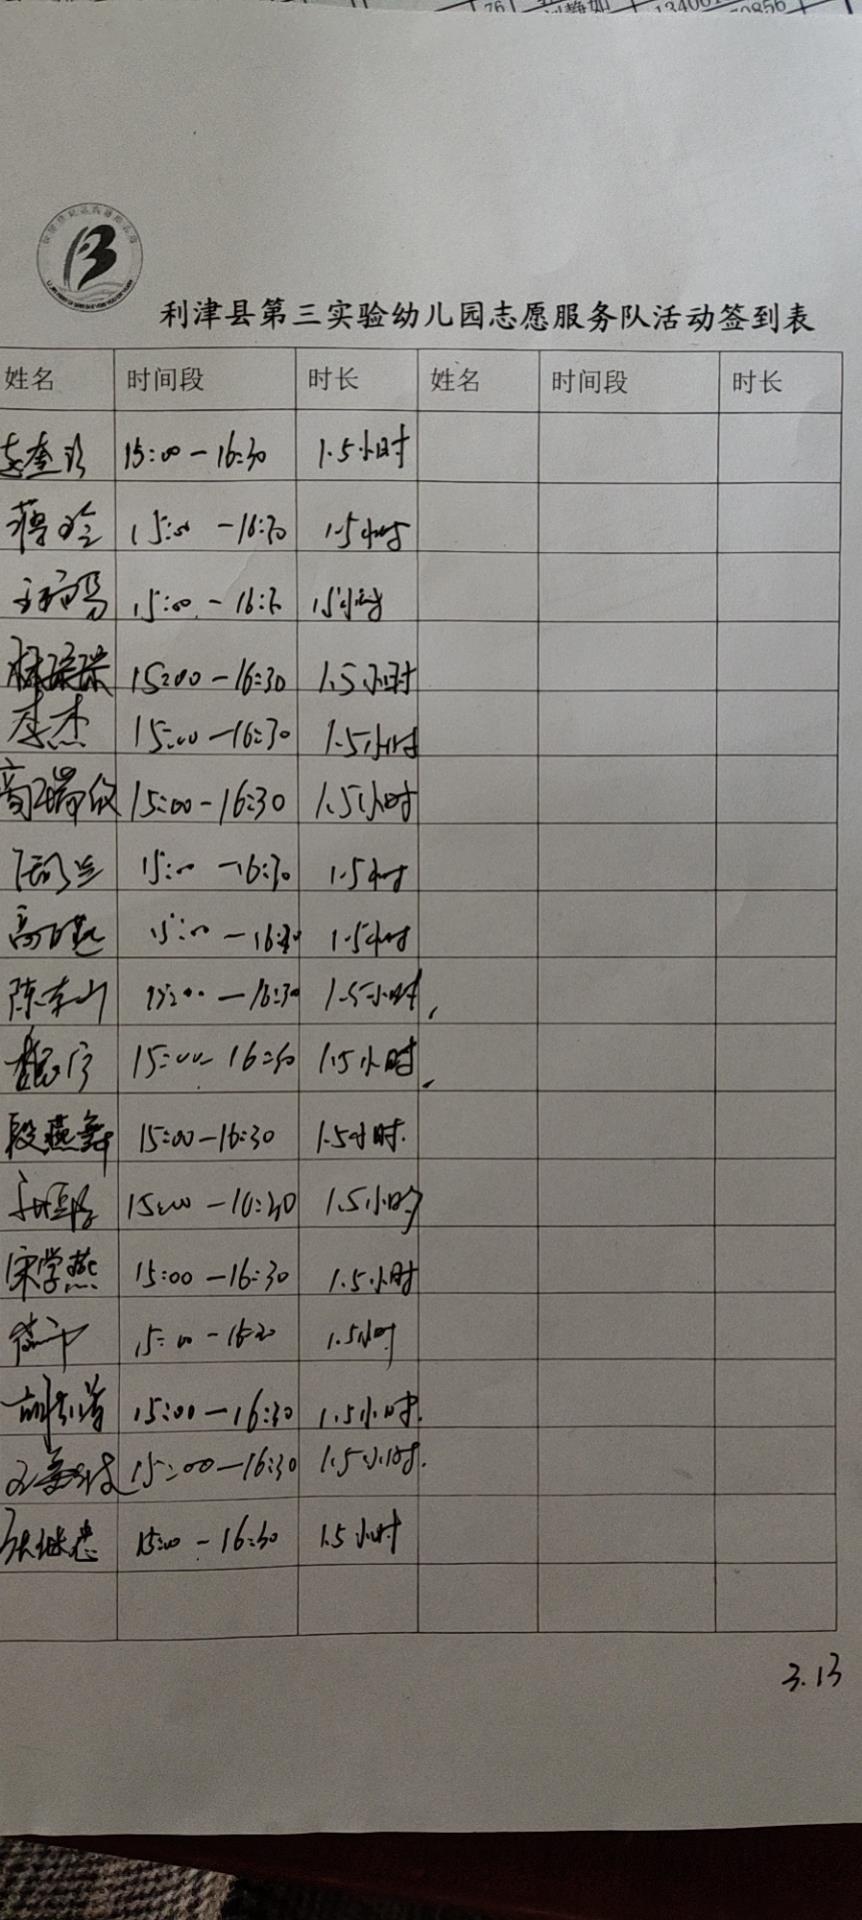 利津县第三实验幼儿园志愿服务队活动签到表
姓名 时间段 时长 姓名 时间段 时长
15:00-16:30 1.5小时
蒋 15:00-16:30 1.5小时
15:00-16:30 1.5小时
林琛琛 15:00-16:30 1.5小时
李杰 15:00-16:30 1.5小时
高瑞欣 15:00-16:30 1.5小时
15:00-16:30 1.5小时
高 15:00-16:30 1.5小时
陈奎山 15:00-16:30 1.5小时
15:00-16:30 1.5小时
段燕舞 15:00-16:30 1.5小时.
15:00-16:30 1.5小时
宋学燕 15:00-16:30 1.5小时
15:00-16:30 1.5小时
15:00-16:30 1.5小时.
15:00-16:30 1.5小时.
张继忠 15:00-16:30 1.5小时
3.13